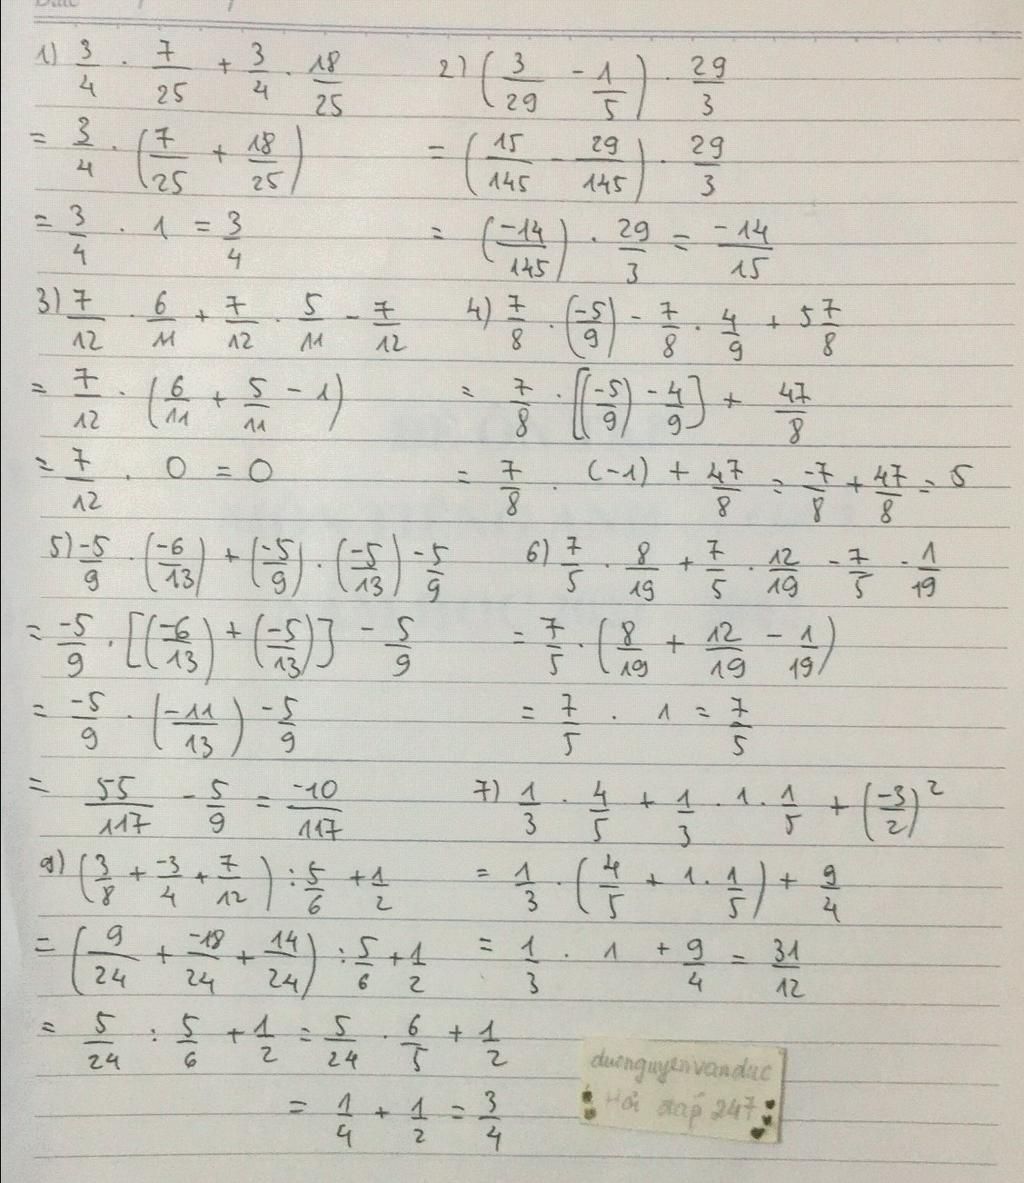 1) 3/4 . 7/25 + 3/4 . 18/25
= 3/4 . (7/25 + 18/25)
= 3/4 . 1 = 3/4
2) (3/29 - 1/5) . 29/3
= (15/145 - 29/145) . 29/3
= (-14/145) . 29/3 = -14/15
3) 7/12 . 6/11 + 7/12 . 5/11 - 7/12
= 7/12 . (6/11 + 5/11 - 1)
= 7/12 . 0 = 0
4) 7/8 . (-5/9) - 7/8 . 4/9 + 5 7/8
= 7/8 . [(-5/9) - 4/9] + 47/8
= 7/8 . (-1) + 47/8 = -7/8 + 47/8 = 5
5) -5/9 . (-6/13) + (-5/9) . (-5/13) - 5/9
= -5/9 . [(-6/13) + (-5/13)] - 5/9
= -5/9 . (-11/13) - 5/9
= 55/117 - 5/9 = -10/117
6) 7/5 . 8/19 + 7/5 . 12/19 - 7/5 . 1/19
= 7/5 . (8/19 + 12/19 - 1/19)
= 7/5 . 1 = 7/5
7) 1/3 . 4/5 + 1/3 . 1 . 1/5 + (-3/2)²
= 1/3 . (4/5 + 1 . 1/5) + 9/4
= 1/3 . 1 + 9/4 = 31/12
(3/8 + -3/4 + 7/12) : 5/6 + 1/2
= (9/24 + -18/24 + 14/24) : 5/6 + 1/2
= 5/24 : 5/6 + 1/2 = 5/24 . 6/5 + 1/2
= 1/4 + 1/2 = 3/4
Hỏi đáp 247